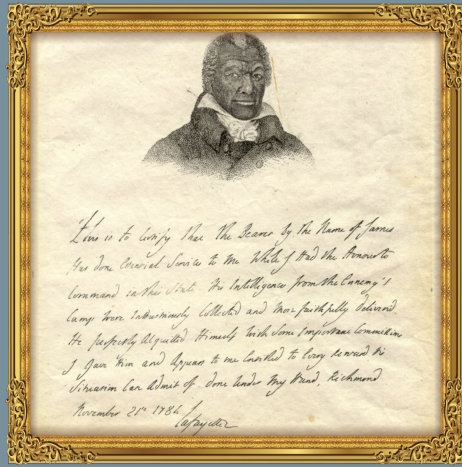 This is to Certify that the Bearer By the Name of James
Has done Essential Services to me While I Had the Honour to
Command in this State. His Intelligences from the Ennemy's
Camp were Industriously Collected and More faithfully deliverd
He perfectly Acquitted Himself with Some Important Commissions
I Gave Him and Appears to me Entitled to Every Reward his
Situation Can Admit of. Done Under my Hand, Richmond
November 21st 1784
Lafayette